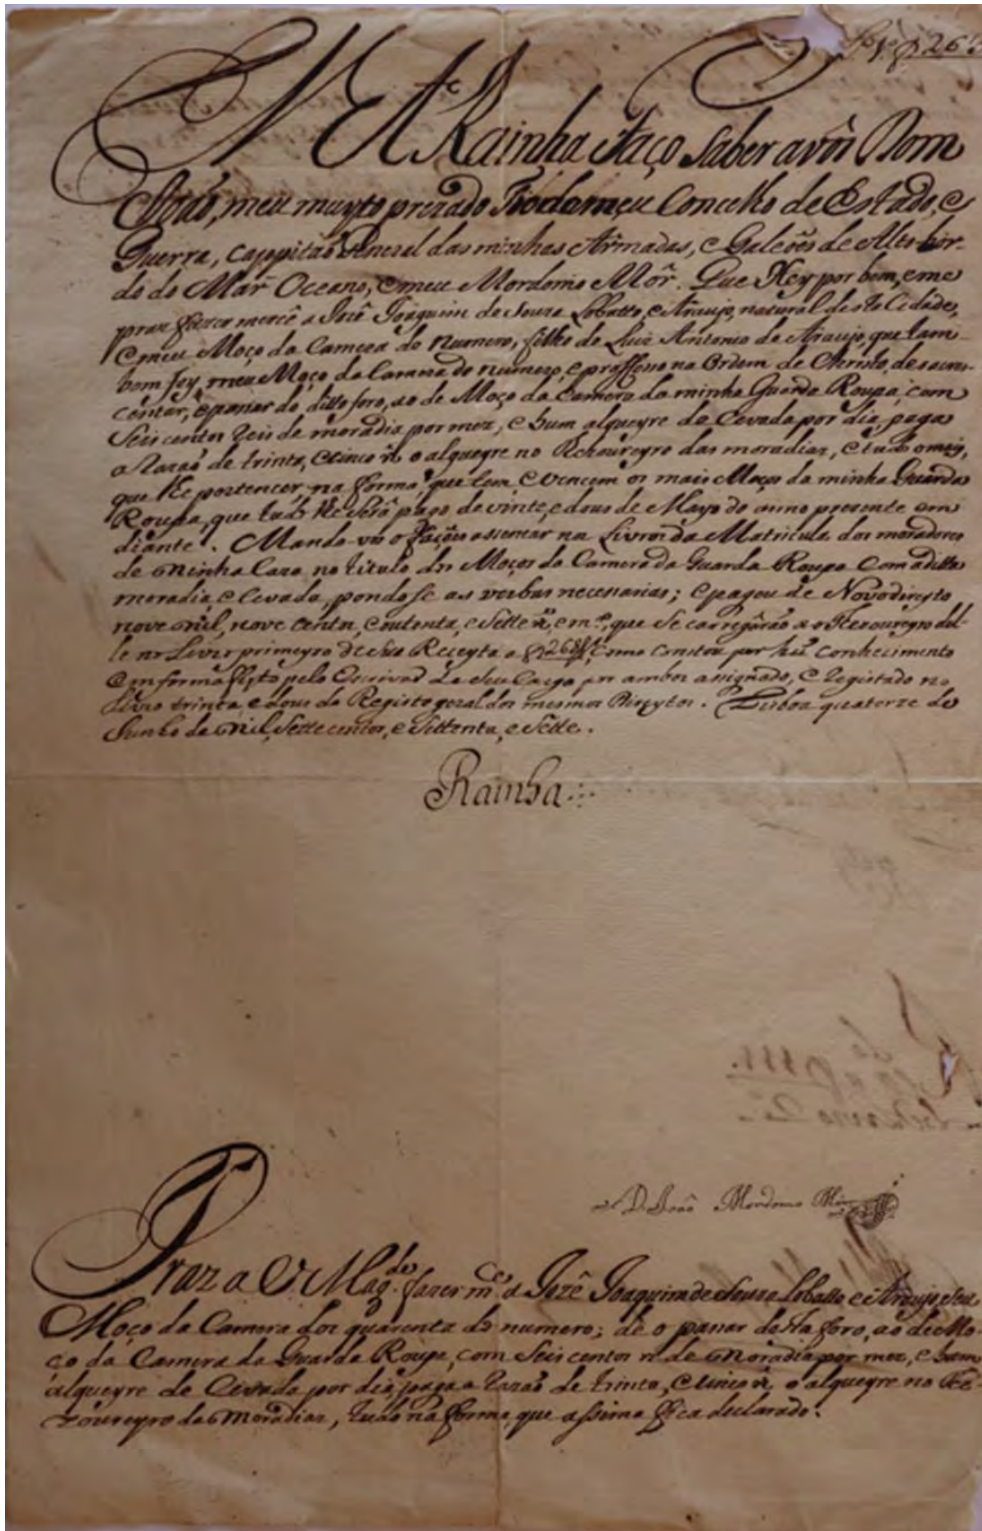 EU A Rainha Faço saber a vós Dom
João, meu muyto prezado Tio do meu Concelho de Estado, e
Guerra, Cappitaõ General das minhas Armadas, e Galeões de Alto bor-
do do Mar Oceano, e meu Mordomo Mór. Que Hey por bem, e me
praz fazer mercê a Jozê Joaquim de Souza Lobatto, e Araujo, natural desta Cidade,
e meu Moço da Camera do numero, filho de Luiz Antonio de Araujo, que tam-
bem foy, meu Moço da Camera do numero, e proffesso na Ordem de Christo, de
centar, e passar do ditto foro, ao de Moço da Camera da minha Guarda Roupa, com
Seis centos reis de moradia por mez, e hum alqueyre de Cevada por dia, paga
a Razaõ de trinta, e cinco rs o alqueyre no Thezoureyro das moradias, e tudo o mais,
que lhe pertencer, na forma, que tem e vencem os mais Moços da minha Guarda
Roupa, que tudo lhe será pago de vinte, e dous de Mayo do anno presente em
diante. Mando-vos o façáes assentar no Livro da Matricula dos moradores
de minha Caza no titulo dos Moços da Camera da Guarda Roupa com a ditta
moradia, e Cevada, pondose as verbas necesarias; e pagou de Novo direyto
nove mil, nove centos, e outenta, e sette rs, e mo., que se carregáraõ ao Thezoureyro del-
le no Livro primeyro de sua Receyta a f 268, como constou por hũ conhecimento
em forma feyto pelo Escrivaõ de seu Cargo por ambos assignado, e Registado no
Livro trinta, e dous do Registo geral dos mesmos Direytos. Lisboa quatorze de
Junho de mil, Sette centos, e Settenta, e Sette.
Rainha
D. Joaõ Mordomo Mór
Praz a V Magde. fazer mce. a Jozê Joaquim de Souza Lobatto e Araujo, seu
Moço da Camera dos quarenta do numero; de o passar deste foro, ao de Mo-
ço da Camera da Guarda Roupa, com Seis centos rs de moradia por mez, e hum
alqueyre de Cevada por dia, paga a Razaõ de trinta, e cinco rs o alqueyre no The-
zoureyro das Moradias, tudo na forma, que assima fica declarado.